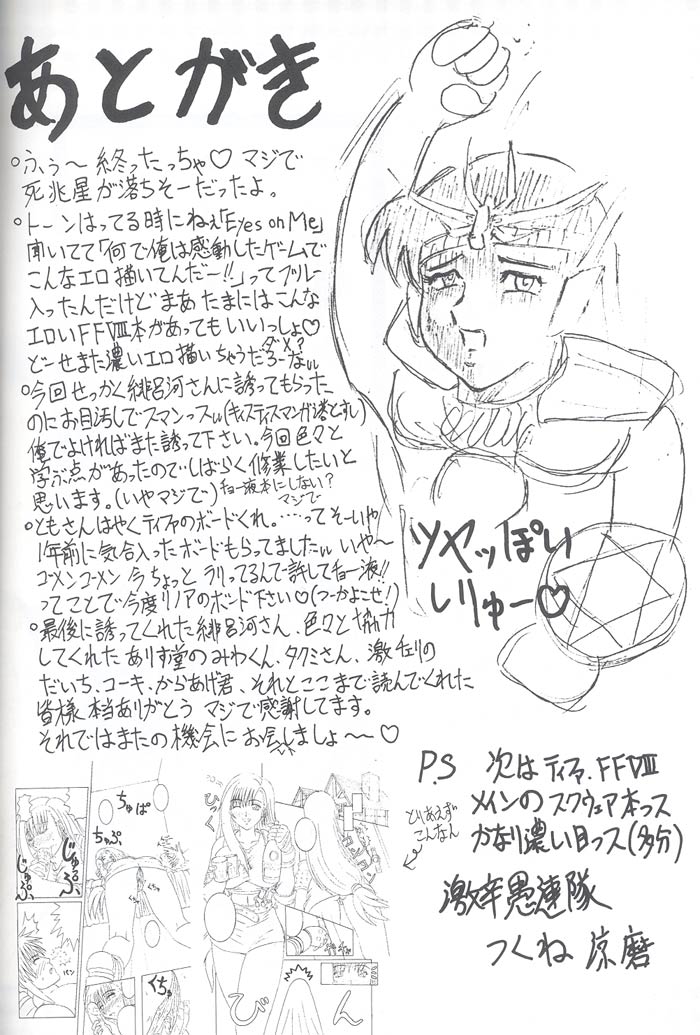 あとがき
○ふぅ〜 終ったっちゃ♡ マジで
死兆星が落ちそーだったよ。
○トーンはってる時にねぇ「Eyes on Me」
聞いてて「何で俺は感動したゲームで
こんなエロ描いてんだー!!」ってブルー
入ったんだけどまあ たまにはこんな
エロいFFVIII本があってもいいっしょ♡
どーせまた濃いエロ描いちゃうだろーなぁ
ダメ?
○今回せっかく緋呂河さんに誘ってもらった
のにお目汚しでスマンっスw(キスティスマンが落とすし)
俺でよければまた誘って下さい。今回色々と
学ぶ点があったのでしばらく修業したいと
思います。(いやマジで)
チョー液本にしない?
マジで
○ともさんはやくティファのボードくれ。……ってそーいや
1年前に気合入ったボードもらってましたw いや〜
ゴメンゴメン 今ちょっと ラリってるんで許してチョー液!!
ってことで今度リノアのボード下さい♡(つーかよこせ!)
○最後に誘ってくれた緋呂河さん、色々と協力
してくれた ありす堂のみわくん、タクミさん、激チェリの
だいち、コーキ、からあげ君、それとここまで読んでくれた
皆様 本当ありがとう マジで感謝してます。
それではまたの機会に お会いしましょ〜♡
ツヤッぽい
しりゅー♡
P.S 次は ティファ.FFVIII
メインの スクウェア本っス
かなり濃い目っス(多分)
とりあえず
こんなん
激辛愚連隊
つくね 涼磨
じゅるぷ、
じゅぷ、
ちゅぱ
ちゃぷ、
くちゅ
パン
ひっく
びん